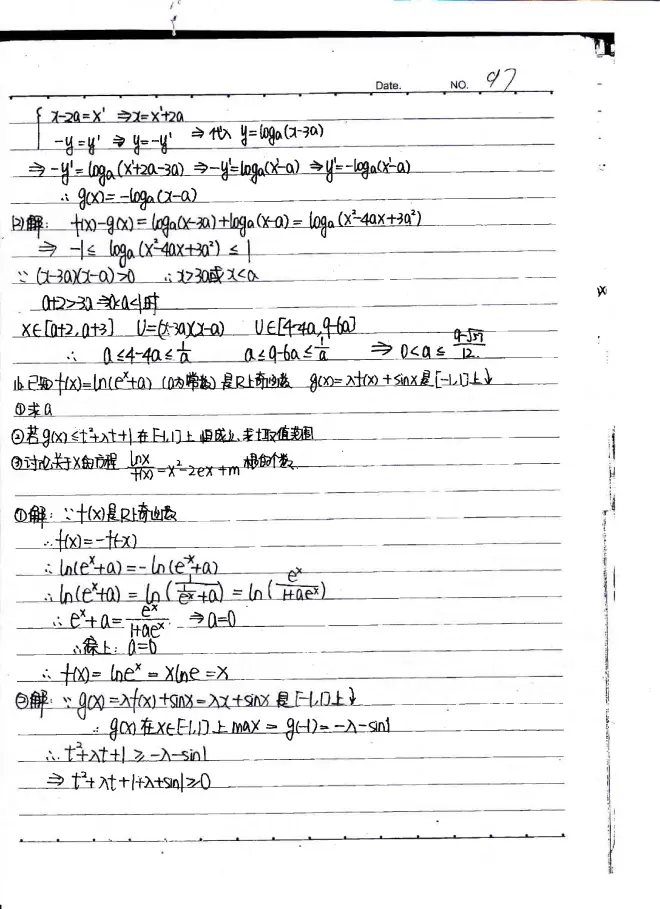 Date. NO. 97
{ x-2a=x' ⇒x=x'+2a
-y=y' ⇒ y=-y' ⇒代入 y=loga(x-3a)
⇒ -y'=loga(x'+2a-3a) ⇒-y'=loga(x'-a) ⇒y'=-loga(x'-a)
∴ g(x)=-loga(x-a)
(2)解: f(x)-g(x)=loga(x-3a)+loga(x-a)=loga(x²-4ax+3a²)
⇒ -1≤ loga(x²-4ax+3a²) ≤1
∵ (x-3a)(x-a)>0 ∴x>3a或x<a
a+2>3a⇒0<a<1时
x∈[a+2,a+3] U=(x-3a)(x-a) U∈[4-4a,9-6a]
∴ a≤4-4a≤1/a a≤9-6a≤1/a ⇒ 0<a≤ (9-√57)/12.
16.已知f(x)=ln(e^x+a) (a为常数) 是R上奇函数 g(x)=λf(x)+sinx是[-1,1]上↓
①求a
②若g(x)≤t²+λt+1在[-1,1]上恒成立,求t取值范围
③讨论关于x的方程 lnx/f(x)=x²-2ex+m 根的个数
①解:∵f(x)是R上奇函数
∴f(x)=-f(-x)
∴ln(e^x+a)=-ln(e^-x+a)
∴ln(e^x+a)=ln(1/(1/e^x+a))=ln(e^x/(1+ae^x))
∴e^x+a=e^x/(1+ae^x) ⇒a=0
∴综上:a=0
∴f(x)=lne^x=xlne=x
②解:∵g(x)=λf(x)+sinx=λx+sinx是[-1,1]上↓
∴g(x)在x∈[-1,1]上max=g(-1)=-λ-sin1
∴t²+λt+1≥-λ-sin1
⇒t²+λt+1+λ+sin1≥0